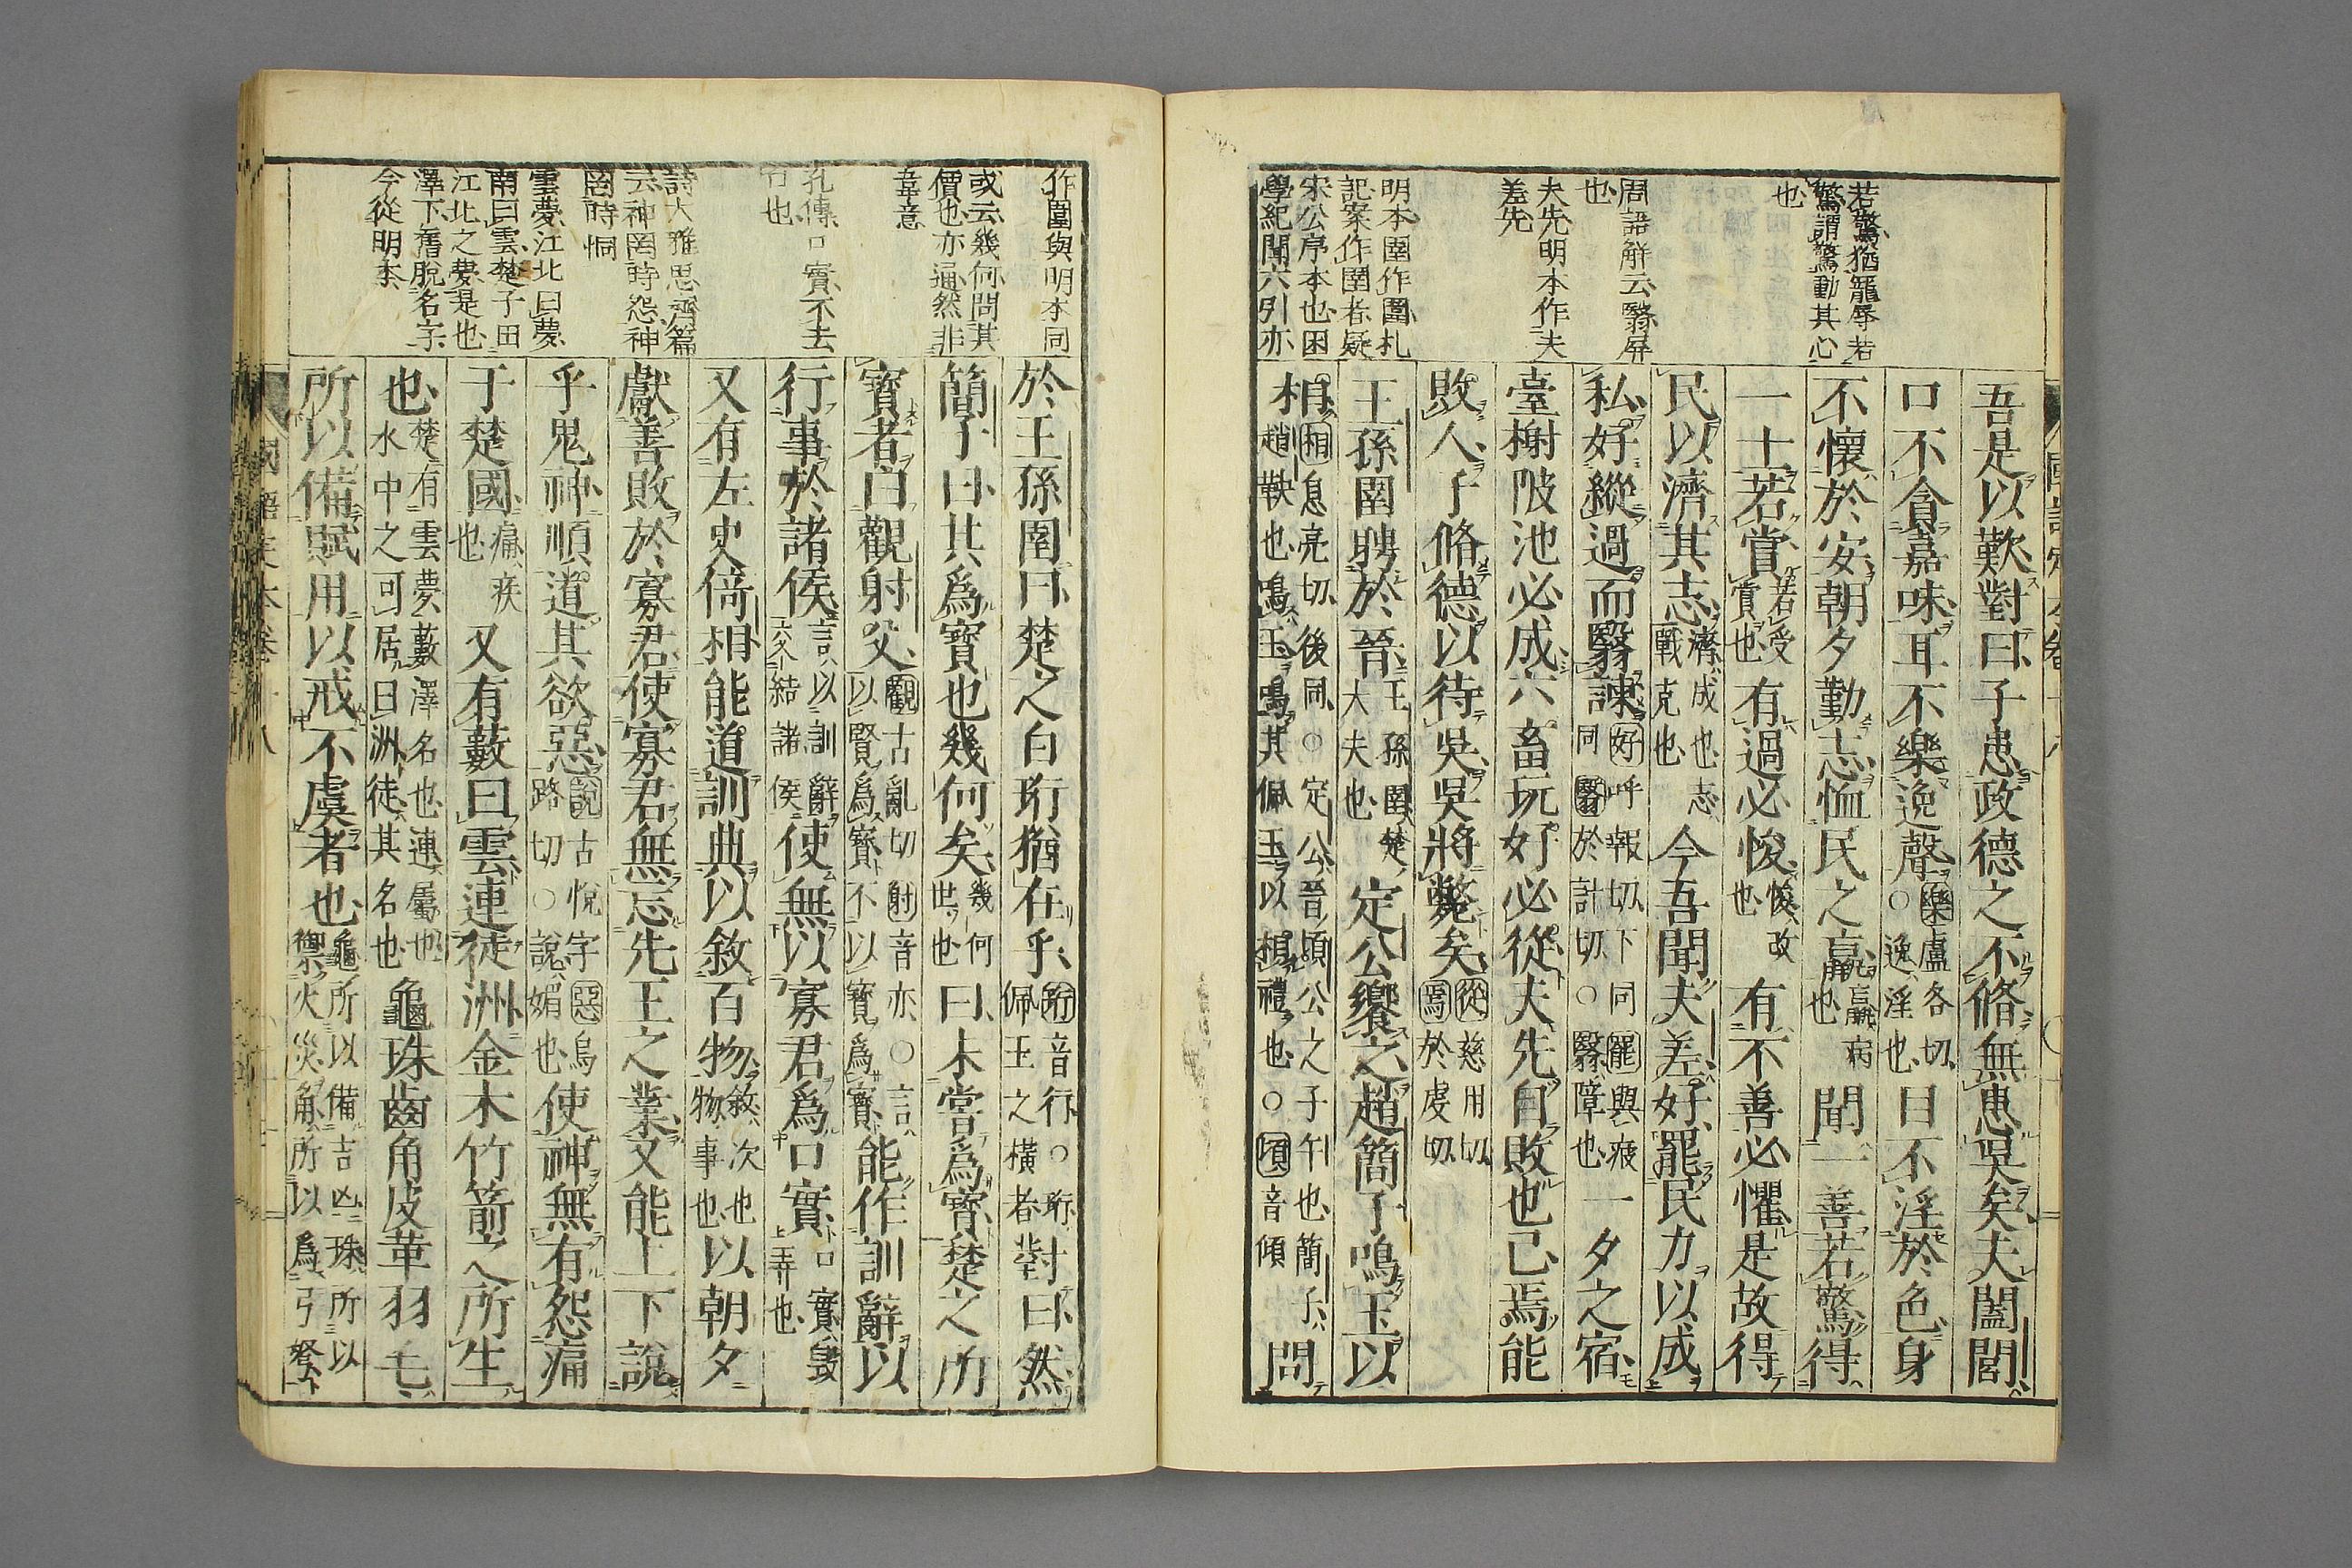 若驚猶寵辱若
驚謂驚動其心
也
周語解云翳屏
也
夫先明本作夫
差先
明本圉作圍札
記案作圉者疑
宋公序本也困
學紀聞六引亦
吾是以歎對曰子患政德之不脩無患吳矣夫闔閭
口不貪嘉味耳不樂逸聲樂盧各切○逸淫也目不淫於色身
不懷於安朝夕勤志恤民之羸羸病也聞一善若驚得
一士若賞若受賞也有過必悛悛改也有不善必懼是故得
民以濟其志濟成也志戰克也今吾聞夫差好罷民力以成
私好縱過而翳諫好呼報切下同罷與疲同翳於計切○翳障也一夕之宿
臺榭陂池必成六畜玩好必從夫先自敗也已焉能
敗人子脩德以待吳吳將斃矣從慈用切焉於虔切
王孫圉聘於晉王孫圉楚大夫也定公饗之趙簡子鳴玉以
相相息亮切後同○定公晉頃公之子午也簡子趙鞅也鳴玉鳴其佩玉以相禮也○頃音傾問
作圍與明本同
或云幾何問其
價也亦通然非
韋意
孔傳口實不去
口也
詩大雅思齊篇
云神罔時怨神
罔時恫
雲夢江北曰夢
南曰雲楚子田
江北之夢是也
澤下舊脫名字
今從明本
於王孫圉曰楚之白珩猶在乎珩音行○珩佩玉之橫者對曰然
簡子曰其爲寶也幾何矣幾何世也曰未嘗爲寶楚之所
寶者曰觀射父觀古亂切射音亦○言以賢爲寶不以寶爲寶能作訓辭以
行事於諸侯言以訓辭交結諸侯使無以寡君爲口實口實毀弄也
又有左史倚相能道訓典以敘百物敘次也物事也以朝夕
獻善敗於寡君使寡君無忘先王之業又能上下說
乎鬼神順道其欲惡說古悅字惡烏路切○說媚也使神無有怨痛
于楚國痛疾也又有藪曰雲連徒洲金木竹箭之所生
也楚有雲夢藪澤名也連屬也水中之可居曰洲徒其名也龜珠齒角皮革羽毛
所以備賦用以戒不虞者也龜所以備吉凶珠所以禦火災角所以爲弓弩